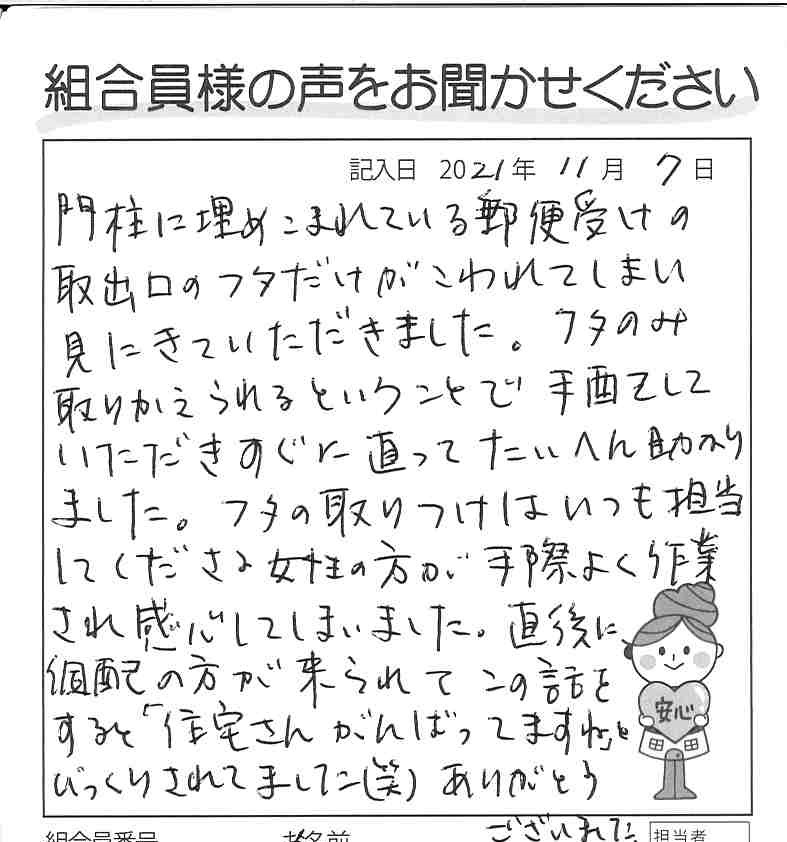 組合員様の声をお聞かせください
記入日 2021年 11月 7日
門柱に埋めこまれている郵便受けの
取出口のフタだけがこわれてしまい
見にきていただきました。フタのみ
取りかえられるということで手配をして
いただきすぐに直ってたいへん助かり
ました。フタの取りつけはいつも担当
してくださる女性の方が手際よく作業
され感心してしまいました。直後に
個配の方が来られてこの話を
すると「住宅さんがんばってますね」と
びっくりされてました(笑)ありがとう
ございました
安心
組合員番号 お名前 担当者